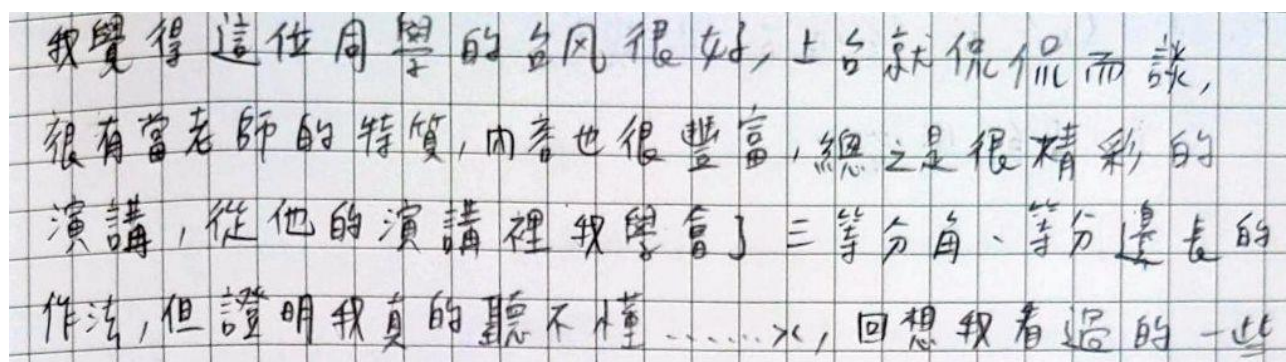 我覺得這位同學的台风很好,上台就侃侃而談,
很有當老師的特質,內容也很豐富,總之是很精彩的
演講,從他的演講裡我學會了三等分角、等分邊長的
作法,但證明我真的聽不懂......><,回想我看過的一些